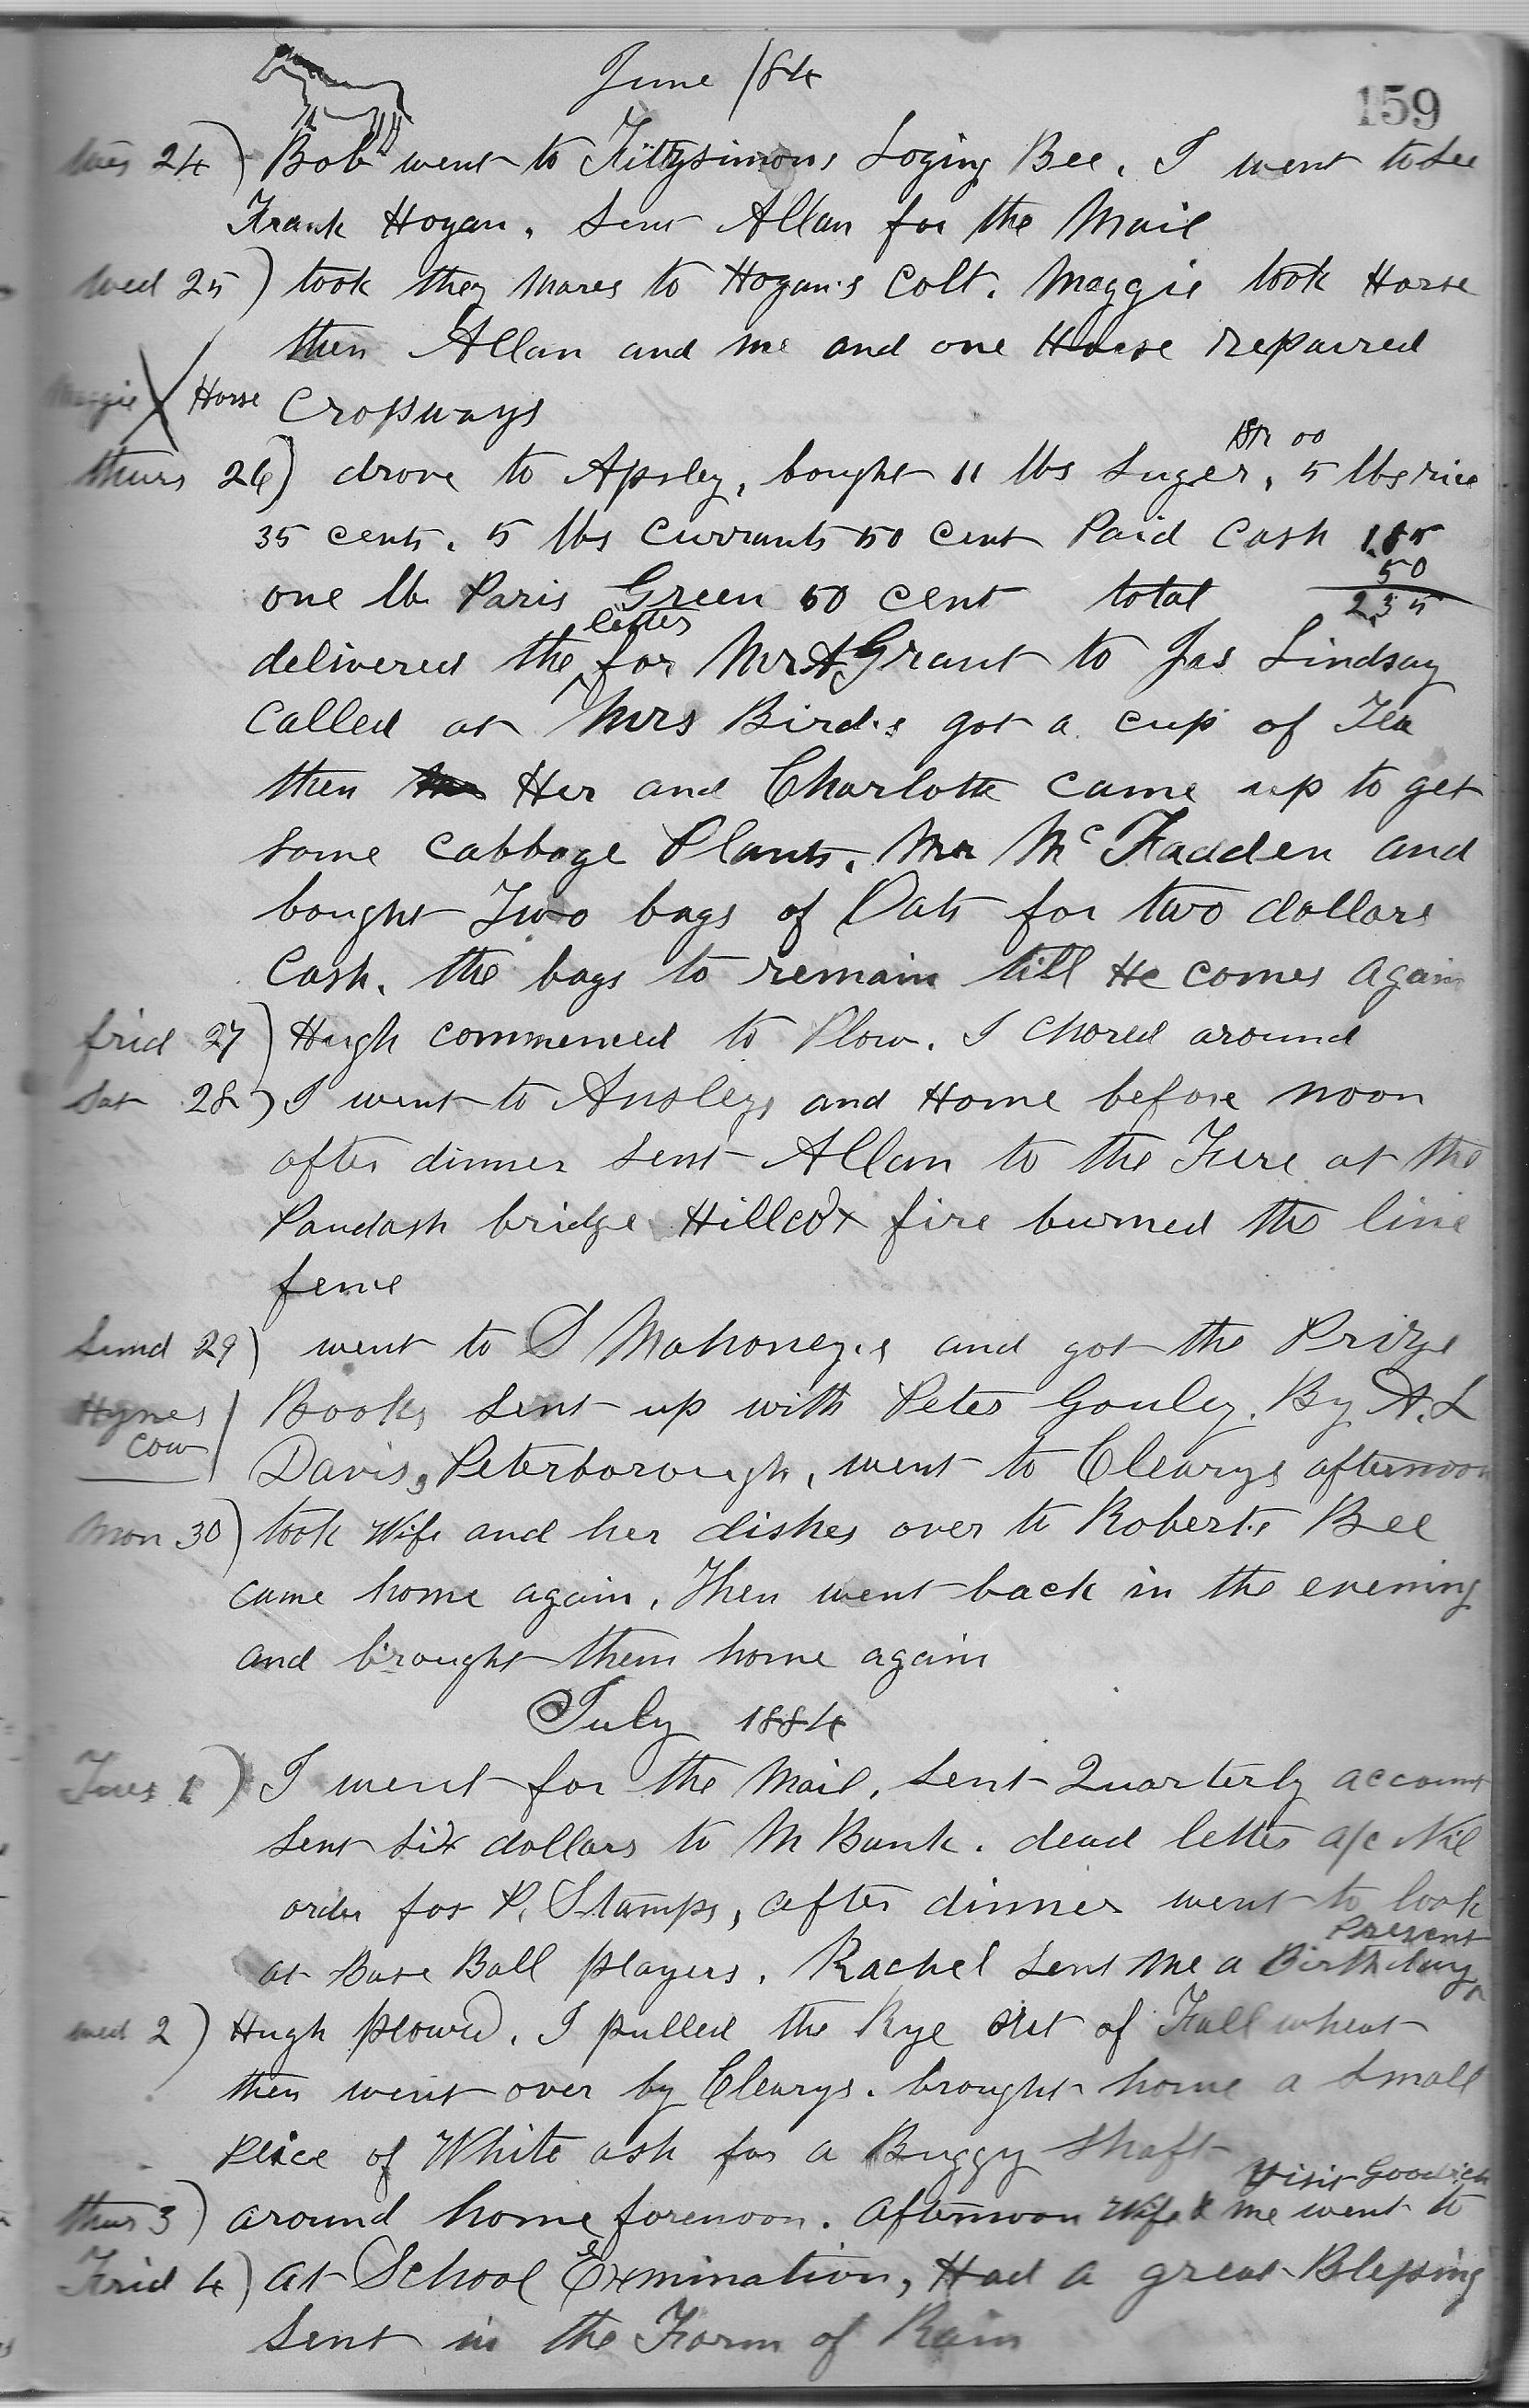 June /84
159
tues 24) Bob went to Fittzsimons Loging Bee. I went to See
Frank Hogan. Sent Allan for the Mail
Wed 25) took they Mares to Hogan's Colt. Maggie took Horse
then Allan and me and one Horse repaired
Maggie X Horse Crossways
thurs 26) drove to Apsley, bought 11 lbs Suger, 1 00 5 lbs rice
35 cents. 5 lbs Currants 50 cent Paid Cash 1.85
50
one lb Paris Green 50 cent total 2.35
letter
delivered the for Mr A Grant to Jas Lindsay
Called at Mrs Bird's got a cup of Tea
then Her and Charlotte came up to get
some Cabbage Plants. Mr McFadden and
bought Two bags of Oats for two dollars
Cash. the bags to remain till He comes again
frid 27) Hugh commenced to Plow. I Chored around
Sat 28) I went to Ansleys and Home before noon
after dinner Sent Allan to the Fire at the
Paudash bridge Hillcox fire burned the line
fence
Sund 29) went to S Mahoney's and got the Prize
Hynes Cow / Books Sent up with Peter Gouley. By A. L
Davis, Peterborough, went to Clearys afternoon
Mon 30) took Wife and her dishes over to Robert's Bee
came home again. Then went back in the evening
and brought them home again
July 1884
Tues 1) I went for the Mail, Sent Quarterly account
Sent Six dollars to M Bank. dead letter a/c Nil
order for P. Stamps, after dinner went to look
Present
at Base Ball players. Rachel Sent me a Birthday
wed 2) Hugh plowd. I pulled the Rye out of Fall wheat
then went over by Clearys. brought home a Small
Peice of White ash for a Buggy Shaft
Visit Goodrich
thurs 3) around home forenoon. afternoon Wife & me went to
Frid 4) at School Exmination, Had a great Blessing
Sent in the Form of Rain